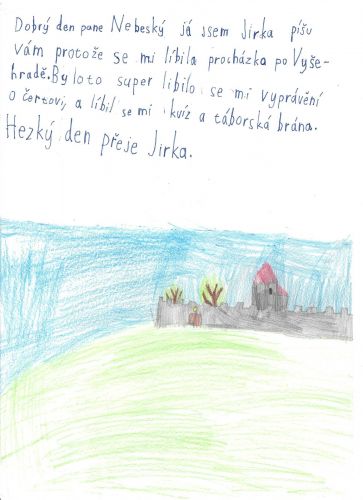 Dobrý den pane Nebeský já jsem Jirka píšu
vám protože se mi líbila procházka po Vyše-
hradě. Byloto super líbilo se mi vyprávění
o čertovi, a líbil se mi kvíz a táborská brána.
Hezký den přeje Jirka.